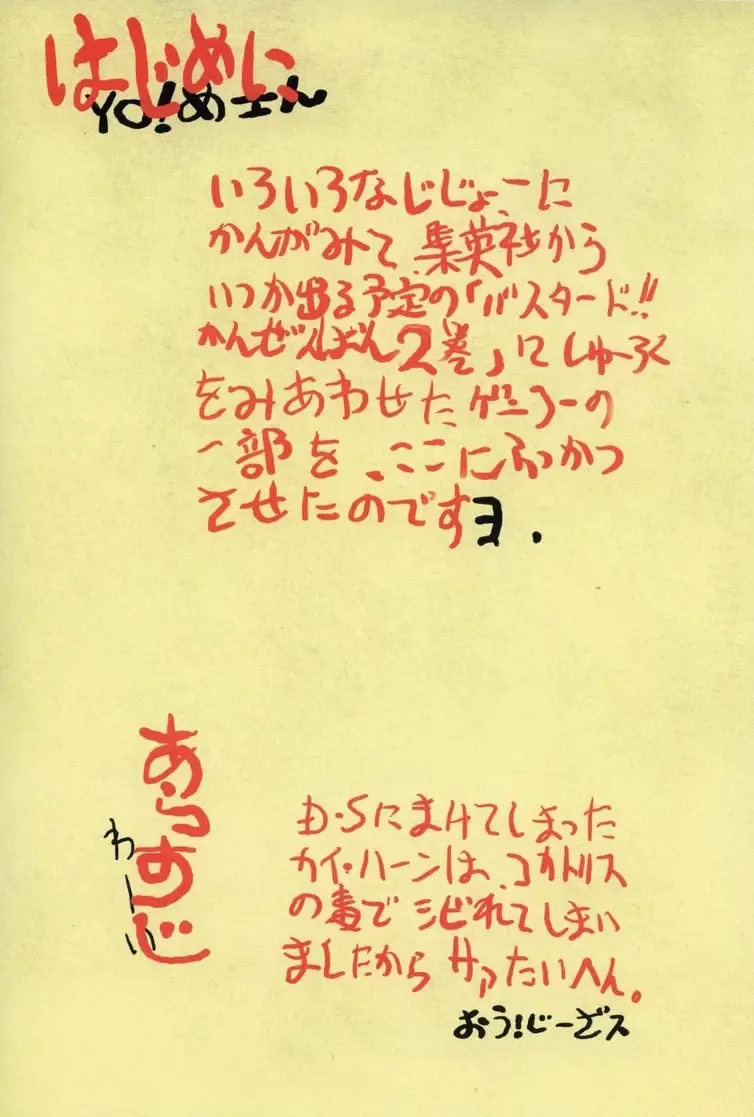 はじめに
YO!めェん
いろいろなじじょーに
かんがみて、集英社から
いつか出る予定の「バスタード!!
かんぜんばん2巻」にしゅーろく
をみあわせたゲンコーの
一部を、ここにふっかつ
させたのですヨ.
あらすじ
わーい
D・Sにまけてしまった
カイ・ハーンは、コカトリス
の毒でシビれてしまい
ましたからサアたいへん。
おう!じーざス